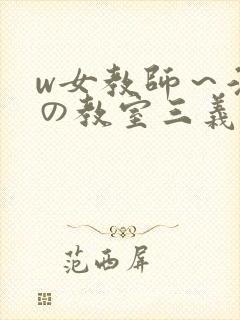 w女教師~
の教室三義
范西屏